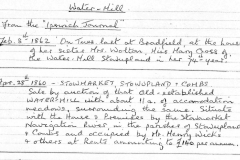 Water-Mill
From the "Ipswich Journal"
Feb. 8th 1862 "On Tues. last at Bradfield, at the house
of her sister Mrs. Wolton, Miss Mary Goss of
the Water-Mill Stowupland in her 74th year."
1860 - STOWMARKET, STOWUPLAND & COMBS
Sale by auction of that Old established
WATERMILL with about 11a. of accomodation
meadows, surrounding the same, situate
with the House & Premises by the Stowmarket
Navigation River, in the parishes of Stowupland
& Combs and occupied by Mr. Henry Wicks
& others at Rents amounting to £160 per annum.